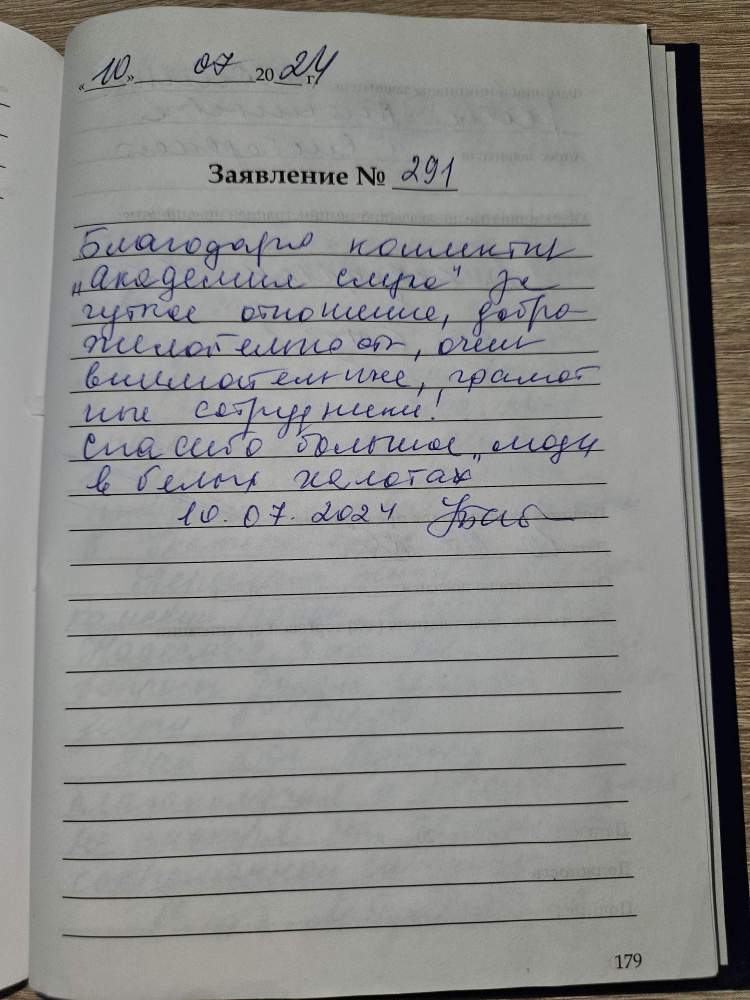 «10» 07 2024 г.
Заявление № 291
Благодарю коллектив
„Академия слуха" за
чуткое отношение, добро-
желательность, очень
внимательные, грамот
ные сотрудники!
Спасибо большое „люди
в белых халатах
10.07.2024
179